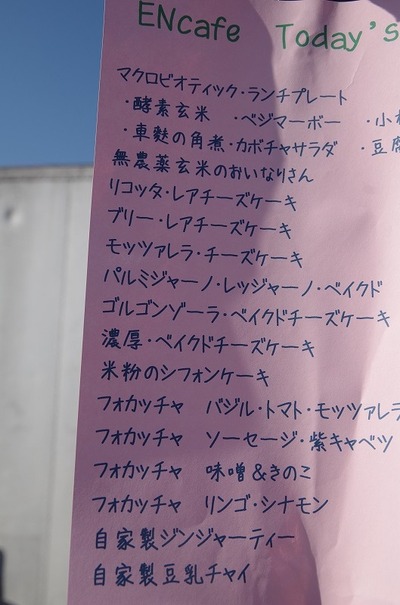 ENcafe Today's
マクロビオティック・ランチプレート
・酵素玄米 ・ベジマーボー ・小
・車麩の角煮・カボチャサラダ ・豆腐
無農薬玄米のおいなりさん
リコッタ・レアチーズケーキ
ブリー・レアチーズケーキ
モッツァレラ・チーズケーキ
パルミジャーノ・レッジャーノ・ベイクド
ゴルゴンゾーラ・ベイクドチーズケーキ
濃厚・ベイクドチーズケーキ
米粉のシフォンケーキ
フォカッチャ バジル・トマト・モッツァレラ
フォカッチャ ソーセージ・紫キャベツ
フォカッチャ 味噌&きのこ
フォカッチャ リンゴ・シナモン
自家製ジンジャーティー
自家製豆乳チャイ